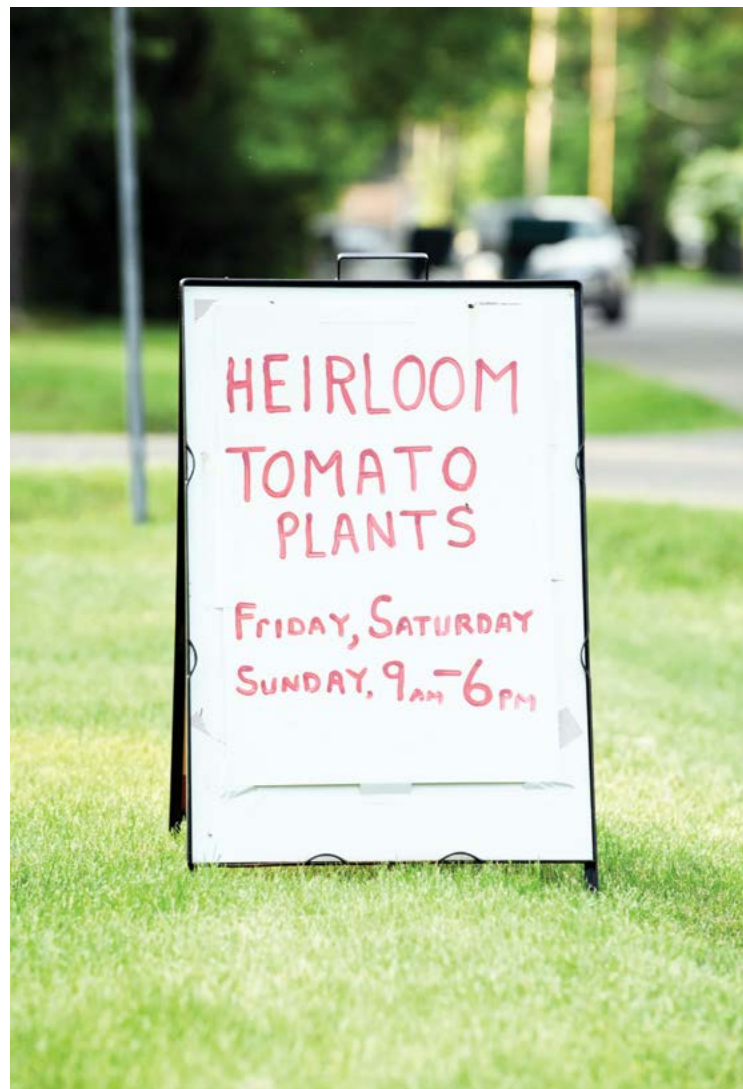 HEIRLOOM
TOMATO
PLANTS
FRIDAY, SATURDAY
SUNDAY, 9AM-6PM